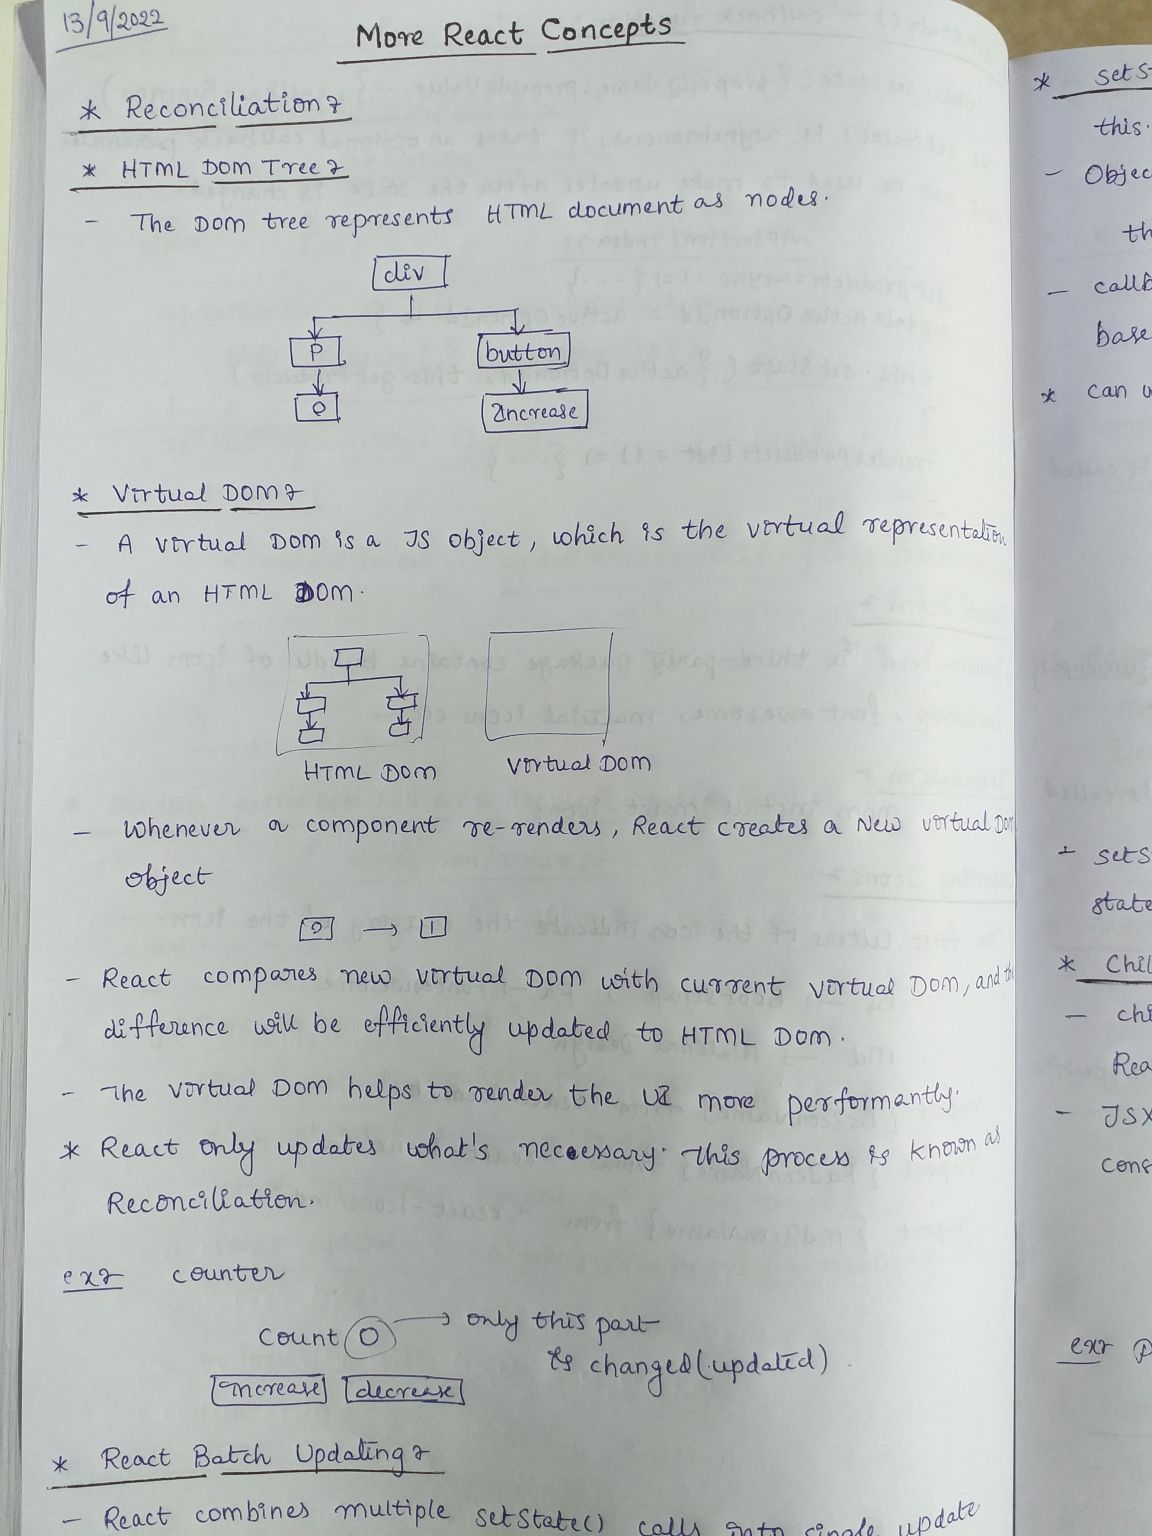 13/9/2022
More React Concepts
* Reconciliation :-
* HTML DOM Tree :-
- The DOM tree represents HTML document as nodes.
div
P button
0 Increase
* Virtual DOM :-
- A virtual DOM is a JS object, which is the virtual representation
of an HTML DOM.
HTML DOM Virtual DOM
- Whenever a component re-renders, React creates a New virtual Dom
object
0 → 1
- React compares new virtual DOM with current virtual DOM, and the
difference will be efficiently updated to HTML DOM.
- The virtual DOM helps to render the UI more performantly.
* React only updates what's necessary. This process is known as
Reconciliation.
ex :- counter
Count 0 → only this part
is changed (updated).
increase decrease
* React Batch Updating :-
- React combines multiple setState() calls into single update
* setS
this.
- Objec
th
- callb
base
* can u
+ setS
state
* Chil
- chi
Rea
- JSX
cons
ex :- P